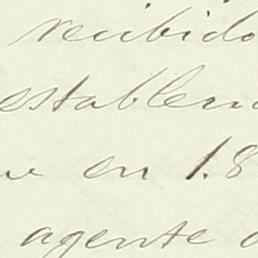 recibido
establem
en 1.8
agente